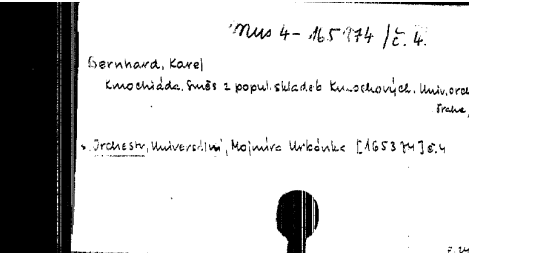 Mus 4-165374/č.4.
Bernhard, Karel
Kmochiáda. Směs z popul. skladeb Kmochových. Univ. orch
Praha,
Orchestr, Universální, Mojmíra Urbánka [165374] č.4